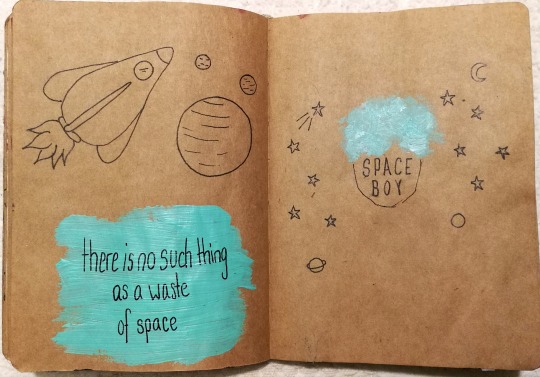 there is no such thing
as a waste
of space
SPACE
BOY